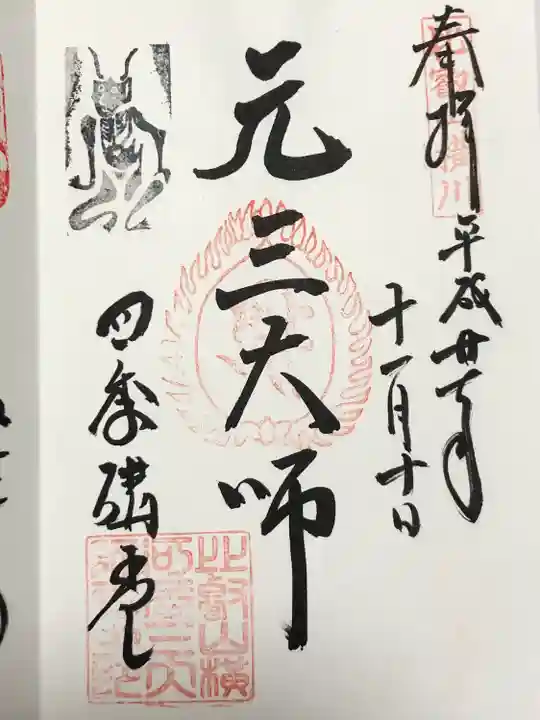 奉拝
比叡山横川
平成廿年
十一月十日
元三大師
四季講堂
比叡山横